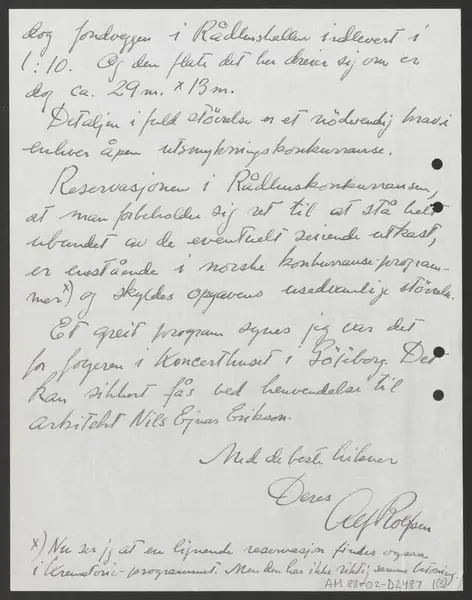 dog fondveggen i Rådhushallen indlevert i
1:10. Og den flate det her dreier sig om er
dog ca. 29 m. x 13 m.
Detaljen i fuld störrelse er et nödvendig krav i
enhver åpen utsmykningskonkurranse.
Reservasjonen i Rådhuskonkurransen,
at man forbeholder sig ret til at stå helt
ubundet av de eventuelt seirende utkast,
er enestående i norske konkurranse-program-
mer x) og skyldes opgavens usedvanlige störrelse.
Et greit program synes jeg var det
for foyeren i Koncerthuset i Göteborg. Det
kan sikkert fås ved henvendelse til
arkitekt Nils Ejnar Erikson.
Med de beste hilsner
Deres
Alf Rolfsen
x) Nu ser jeg at en lignende reservasjon findes ogsaa
i Krematorie-programmet. Men den har ikke riktig samme betoning.
AM 88+02-D2487 (2)